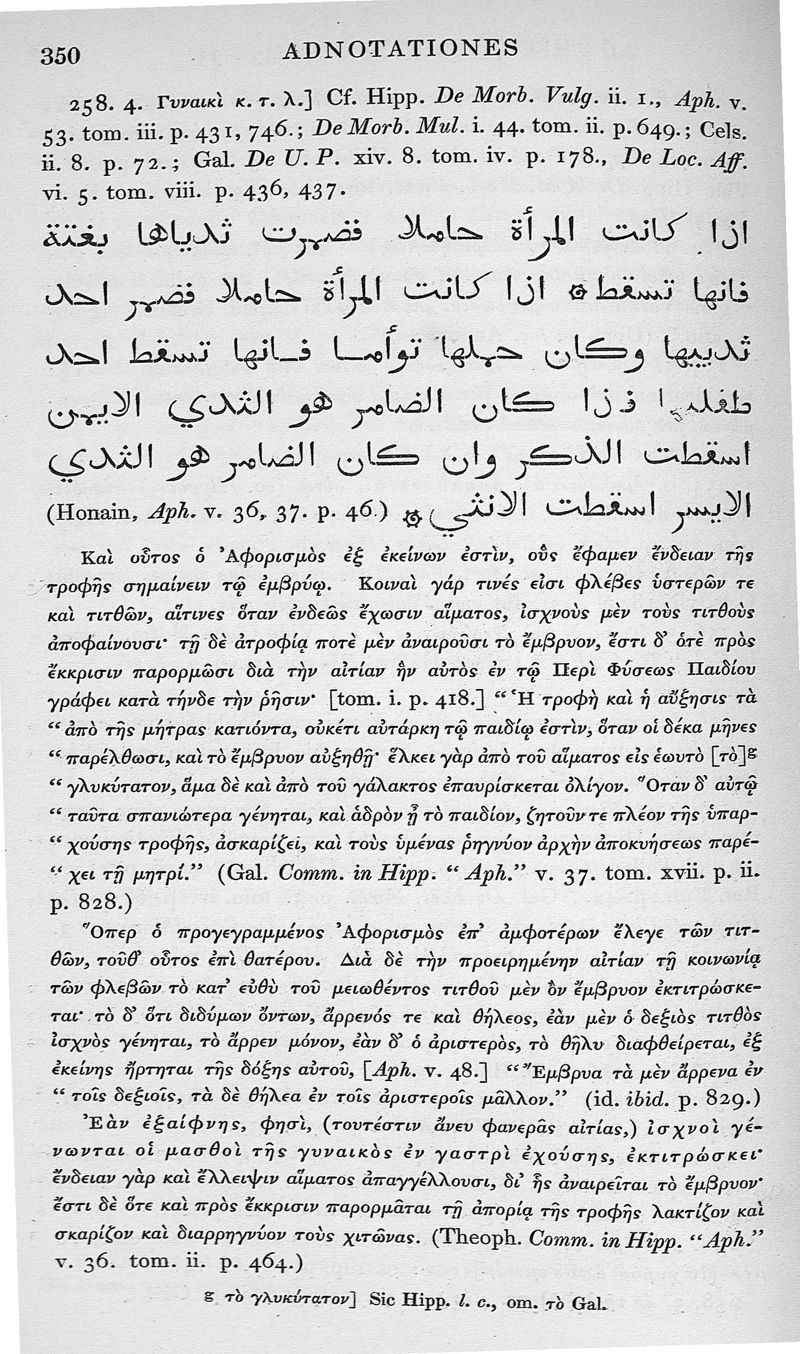 350 ADNOTATIONES
258. 4. Γυναικὶ κ. τ. λ.] Cf. Hipp. De Morb. Vulg. ii. 1., Aph. v.
53. tom. iii. p. 431, 746.; De Morb. Mul. i. 44. tom. ii. p. 649.; Cels.
ii. 8. p. 72.; Gal. De U. P. xiv. 8. tom. iv. p. 178., De Loc. Aff.
vi. 5. tom. viii. p. 436, 437.
اذا كانت المرأة حاملا فضمرت ثدياها بغتة
فانها تسقط ۞ اذا كانت المرأة حاملا فضمر احد
ثدييها وكان حملها توأما فانها تسقط احد
طفليها فذا كان الضامر هو الثدي الايمن
اسقطت الذكر وان كان الضامر هو الثدي
الايسر اسقطت الانثي ۞ (Honain, Aph. v. 36, 37. p. 46.)
Καὶ οὗτος ὁ Ἀφορισμὸς ἐξ ἐκείνων ἐστὶν, οὓς ἔφαμεν ἔνδειαν τῆς
τροφῆς σημαίνειν τῷ ἐμβρύῳ. Κοιναὶ γάρ τινές εἰσι φλέβες ὑστερῶν τε
καὶ τιτθῶν, αἵτινες ὅταν ἐνδεῶς ἔχωσιν αἵματος, ἰσχνοὺς μὲν τοὺς τιτθοὺς
ἀποφαίνουσι· τῇ δὲ ἀτροφίᾳ ποτὲ μὲν ἀναιροῦσι τὸ ἔμβρυον, ἔστι δ' ὁτὲ πρὸς
ἔκκρισιν παρορμῶσι διὰ τὴν αἰτίαν ἣν αὐτὸς ἐν τῷ Περὶ Φύσεως Παιδίου
γράφει κατὰ τήνδε τὴν ῥῆσιν· [tom. i. p. 418.] “Ἡ τροφὴ καὶ ἡ αὔξησις τὰ
“ ἀπὸ τῆς μήτρας κατιόντα, οὐκέτι αὐτάρκη τῷ παιδίῳ ἐστὶν, ὅταν οἱ δέκα μῆνες
“ παρέλθωσι, καὶ τὸ ἔμβρυον αὐξηθῇ· ἕλκει γὰρ ἀπὸ τοῦ αἵματος εἰς ἑωυτὸ [τὸ]g
“ γλυκύτατον, ἅμα δὲ καὶ ἀπὸ τοῦ γάλακτος ἐπαυρίσκεται ὀλίγον. Ὅταν δ' αὐτῷ
“ ταῦτα σπανιώτερα γένηται, καὶ ἁδρὸν ᾖ τὸ παιδίον, ζητοῦν τε πλέον τῆς ὑπαρ-
“ χούσης τροφῆς, ἀσκαρίζει, καὶ τοὺς ὑμένας ῥηγνύον ἀρχὴν ἀποκυήσεως παρέ-
“ χει τῇ μητρί.” (Gal. Comm. in Hipp. “Aph.” v. 37. tom. xvii. p. ii.
p. 828.)
Ὅπερ ὁ προγεγραμμένος Ἀφορισμὸς ἐπ' ἀμφοτέρων ἔλεγε τῶν τιτ-
θῶν, τοῦθ' οὗτος ἐπὶ θατέρου. Διὰ δὲ τὴν προειρημένην αἰτίαν τῇ κοινωνίᾳ
τῶν φλεβῶν τὸ κατ' εὐθὺ τοῦ μειωθέντος τιτθοῦ μὲν ὂν ἔμβρυον ἐκτιτρώσκε-
ται· τὸ δ' ὅτι διδύμων ὄντων, ἄρρενός τε καὶ θήλεος, ἐὰν μὲν ὁ δεξιὸς τιτθὸς
ἰσχνὸς γένηται, τὸ ἄρρεν μόνον, ἐὰν δ' ὁ ἀριστερὸς, τὸ θῆλυ διαφθείρεται, ἐξ
ἐκείνης ἤρτηται τῆς δόξης αὐτοῦ, [Aph. v. 48.] “Ἔμβρυα τὰ μὲν ἄρρενα ἐν
“ τοῖς δεξιοῖς, τὰ δὲ θήλεα ἐν τοῖς ἀριστεροῖς μᾶλλον.” (id. ibid. p. 829.)
Ἐὰν ἐξαίφνης, φησὶ, (τουτέστιν ἄνευ φανερᾶς αἰτίας,) ἰσχνοὶ γέ-
νωνται οἱ μασθοὶ τῆς γυναικὸς ἐν γαστρὶ ἐχούσης, ἐκτιτρώσκει·
ἔνδειαν γὰρ καὶ ἔλλειψιν αἵματος ἀπαγγέλλουσι, δι' ἧς ἀναιρεῖται τὸ ἔμβρυον·
ἔστι δὲ ὅτε καὶ πρὸς ἔκκρισιν παρορμᾶται τῇ ἀπορίᾳ τῆς τροφῆς λακτίζον καὶ
σκαρίζον καὶ διαρρηγνύον τοὺς χιτῶνας. (Theoph. Comm. in Hipp. “Aph.”
v. 36. tom. ii. p. 464.)
g τὸ γλυκύτατον] Sic Hipp. l. c., om. τὸ Gal.